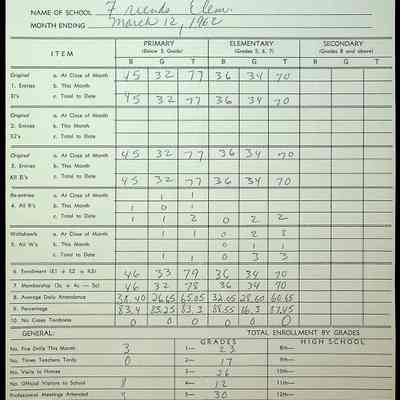 NAME OF SCHOOL Friends Elem.
MONTH ENDING March 12, 1962
PRIMARY (Below 5 Grade) ELEMENTARY (Grades 5, 6, 7) SECONDARY (Grades 8 and above)
ITEM B G T B G T B G T
Original a. At Close of Month 45 32 77 36 34 70
1. Entries b. This Month
E1's c. Total to Date 45 32 77 36 34 70
Original a. At Close of Month
2. Entries b. This Month
E2's c. Total to Date
Original a. At Close of Month 45 32 77 36 34 70
3. Entries b. This Month
All E's c. Total to Date 45 32 77 36 34 70
Re-entries a. At Close of Month 1 1
4. All R's b. This Month 1 0 1
c. Total to Date 1 1 2 0 2 2
Withdrawls a. At Close of Month 0 2
5. All W's b. This Month 0 1 1
c. Total to Date 0 3 3
6. Enrollment (E1 + E2 + R3) 46 33 79 36 34 70
7. Membership (3c + 4c — 5c) 46 32 78 36 34 70
8. Average Daily Attendance 38.40 26.65 65.05 32.05 28.60 60.65
9. Percentage 83.4 83.25 83.3 88.55
10. No. Cases Tardiness 0 0 0 0 0 0
GENERAL: TOTAL ENROLLMENT BY GRADES
GRADES HIGH SCHOOL
No. Fire Drills This Month 3 1— 23 8th—
No. Times Teachers Tardy 0 2— 17 9th—
No. Visits to Homes 3— 26 10th—
No. Official Visitors to School 8 4— 12 11th—
Professional Meetings Attended 5— 30 12th—